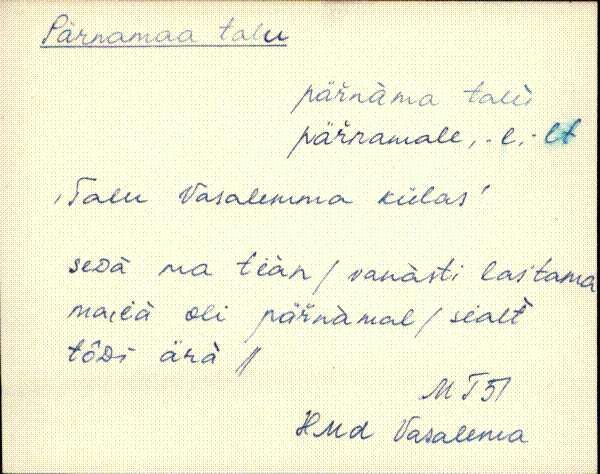 Pärnamaa talu
pärnàma talù
pärnamale, -l, -lt
'Talu Vasalemma külas'
seDà ma tiàn / vanàsti lastama
oli pärnàmal / sialt
tõDi ärà //
M T 51
HMd Vasalema